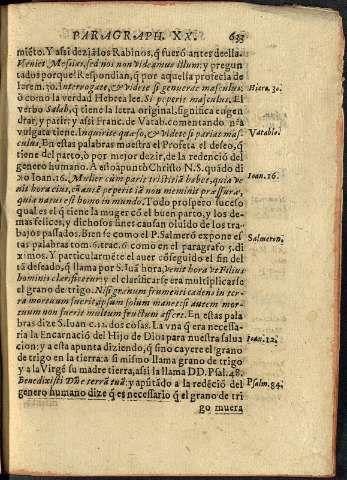 PARAGRAPH. XX. 633
miẽto. Y assi dezià los Rabinos, q̃ fuerõ antes deella.
Veniet Messias, sed nos non videamus illum: y pregun
tados porque? Respondian, q̃ por aquella profecia de
Ierem. 30. Interrogate, & videte si generat masculus,
ò como la verdad Hebrea lee. Si peperit masculus. El
verbo Salab, que tiene la letra original, significa engen
drar, y parir; y assi Franc. de Vatab. comentando nr̃a
vulgata tiene. Inquirite quæso, & videte si pariat mas-
culus. En estas palabras muestra el Profeta el deseo, q̃
tiene del parto, ò por mejor dezir, de la redenciõ del
genero humano. A esto apuntò Christo N. S. quãdo di
xo Ioan. 16. Mulier cum parit tristitiã habet, quia ve
nit hora eius, cũ autẽ pepererit iã non meminit præssuræ,
quia natus est homo in mundo. Todo prospero sucesso
qual es el q̃ tiene la muger cõ el buen parto, y los de-
mas felices, y dichosos fines causan oluido de los tra-
bajos passados. Bien se como el P. Salmerõ expone es
tas palabras tom. 6. trac. 6 como en el paragrafo 5. di
ximos. Y particularmẽte el auer cõseguido el fin del
tã deseado, q̃ llama por S. Iuã hora, Venit hora vt Filius
hominis clarificetur: y el clarificarse era multiplicarse
el grano de trigo. Nisi granum frumenti cadens in ter-
ra mortuum fuerit, ipsum solum manet: si autem mor-
tuum non fuerit multum fructum affert. En estas pala
bras dize S. Iuan c. 12. dos cosas. La vna q̃ era necessa-
ria la Encarnaciò del Hijo de Dios para nuestra salua
cion: y a esta apunta diziendo, q̃ sino cayere el grano
de trigo en la tierra: a si mismo llama grano de trigo
y a la Virgẽ su madre tierra, assi la llama DD. Psal. 48.
Benedixisti Dñe terrã tuã: y apũtãdo a la redẽciõ del
genero humano dize q̃ es necessario q̃ el grano de tri
go muera
Hiere. 30.
Vatablo.
Ioan. 16.
Salmeron.
Ioan. 12.
Psalm. 84.